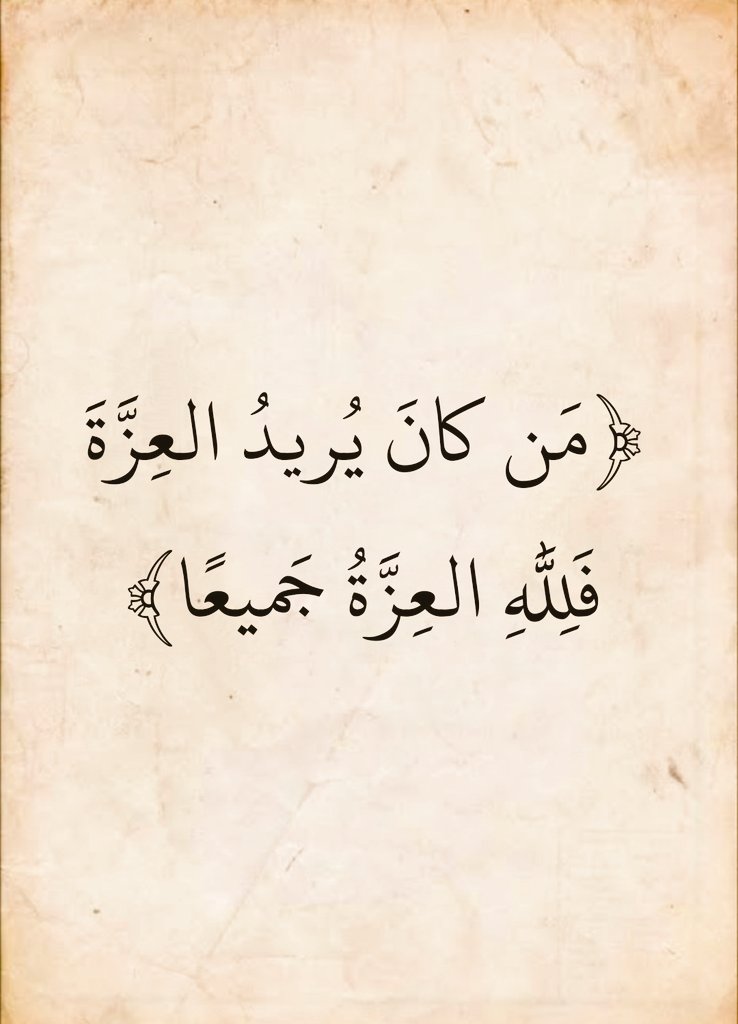 ﴿مَن كانَ يُريدُ العِزَّةَ
فَلِلَّهِ العِزَّةُ جَميعًا﴾